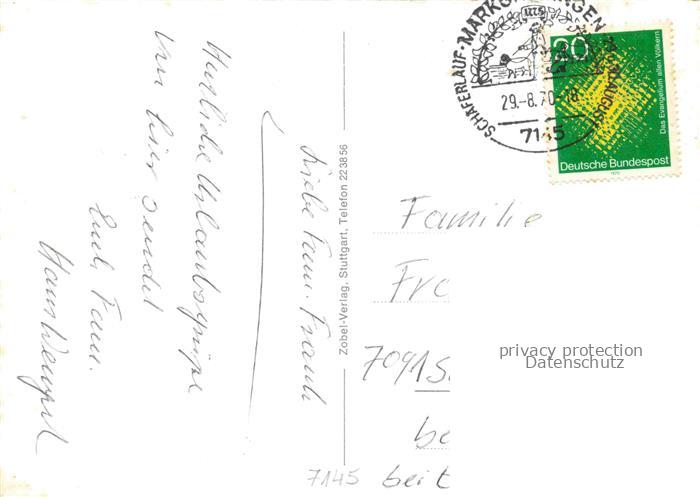 Liebe Fam.
Herzliche Urlaubsgrüße
von hier sendet
Euch Fam.
Hans
Zobel-Verlag, Stuttgart, Telefon 223856
SCHÄFERLAUF · MARKGRÖNINGEN · AUGUST
29.-8.70.-18
7145
20
Das Evangelium allen Völkern
Deutsche Bundespost
1970
Familie
7091
be
7145 bei
privacy protection
Datenschutz